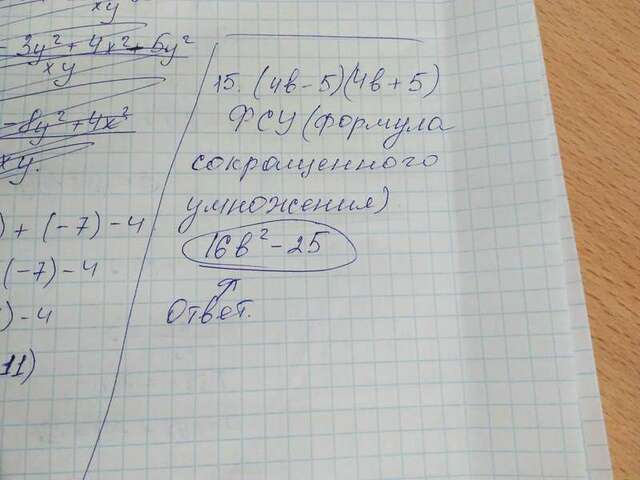 xy
- 3y² + 4x² - 5y²
xy
- 8y² + 4x²
xy.
) + (-7) - 4
(-7) - 4
) - 4
11)
15. (4b - 5)(4b + 5)
ФСУ (формула
сокращенного
умножения)
16b² - 25
Ответ.